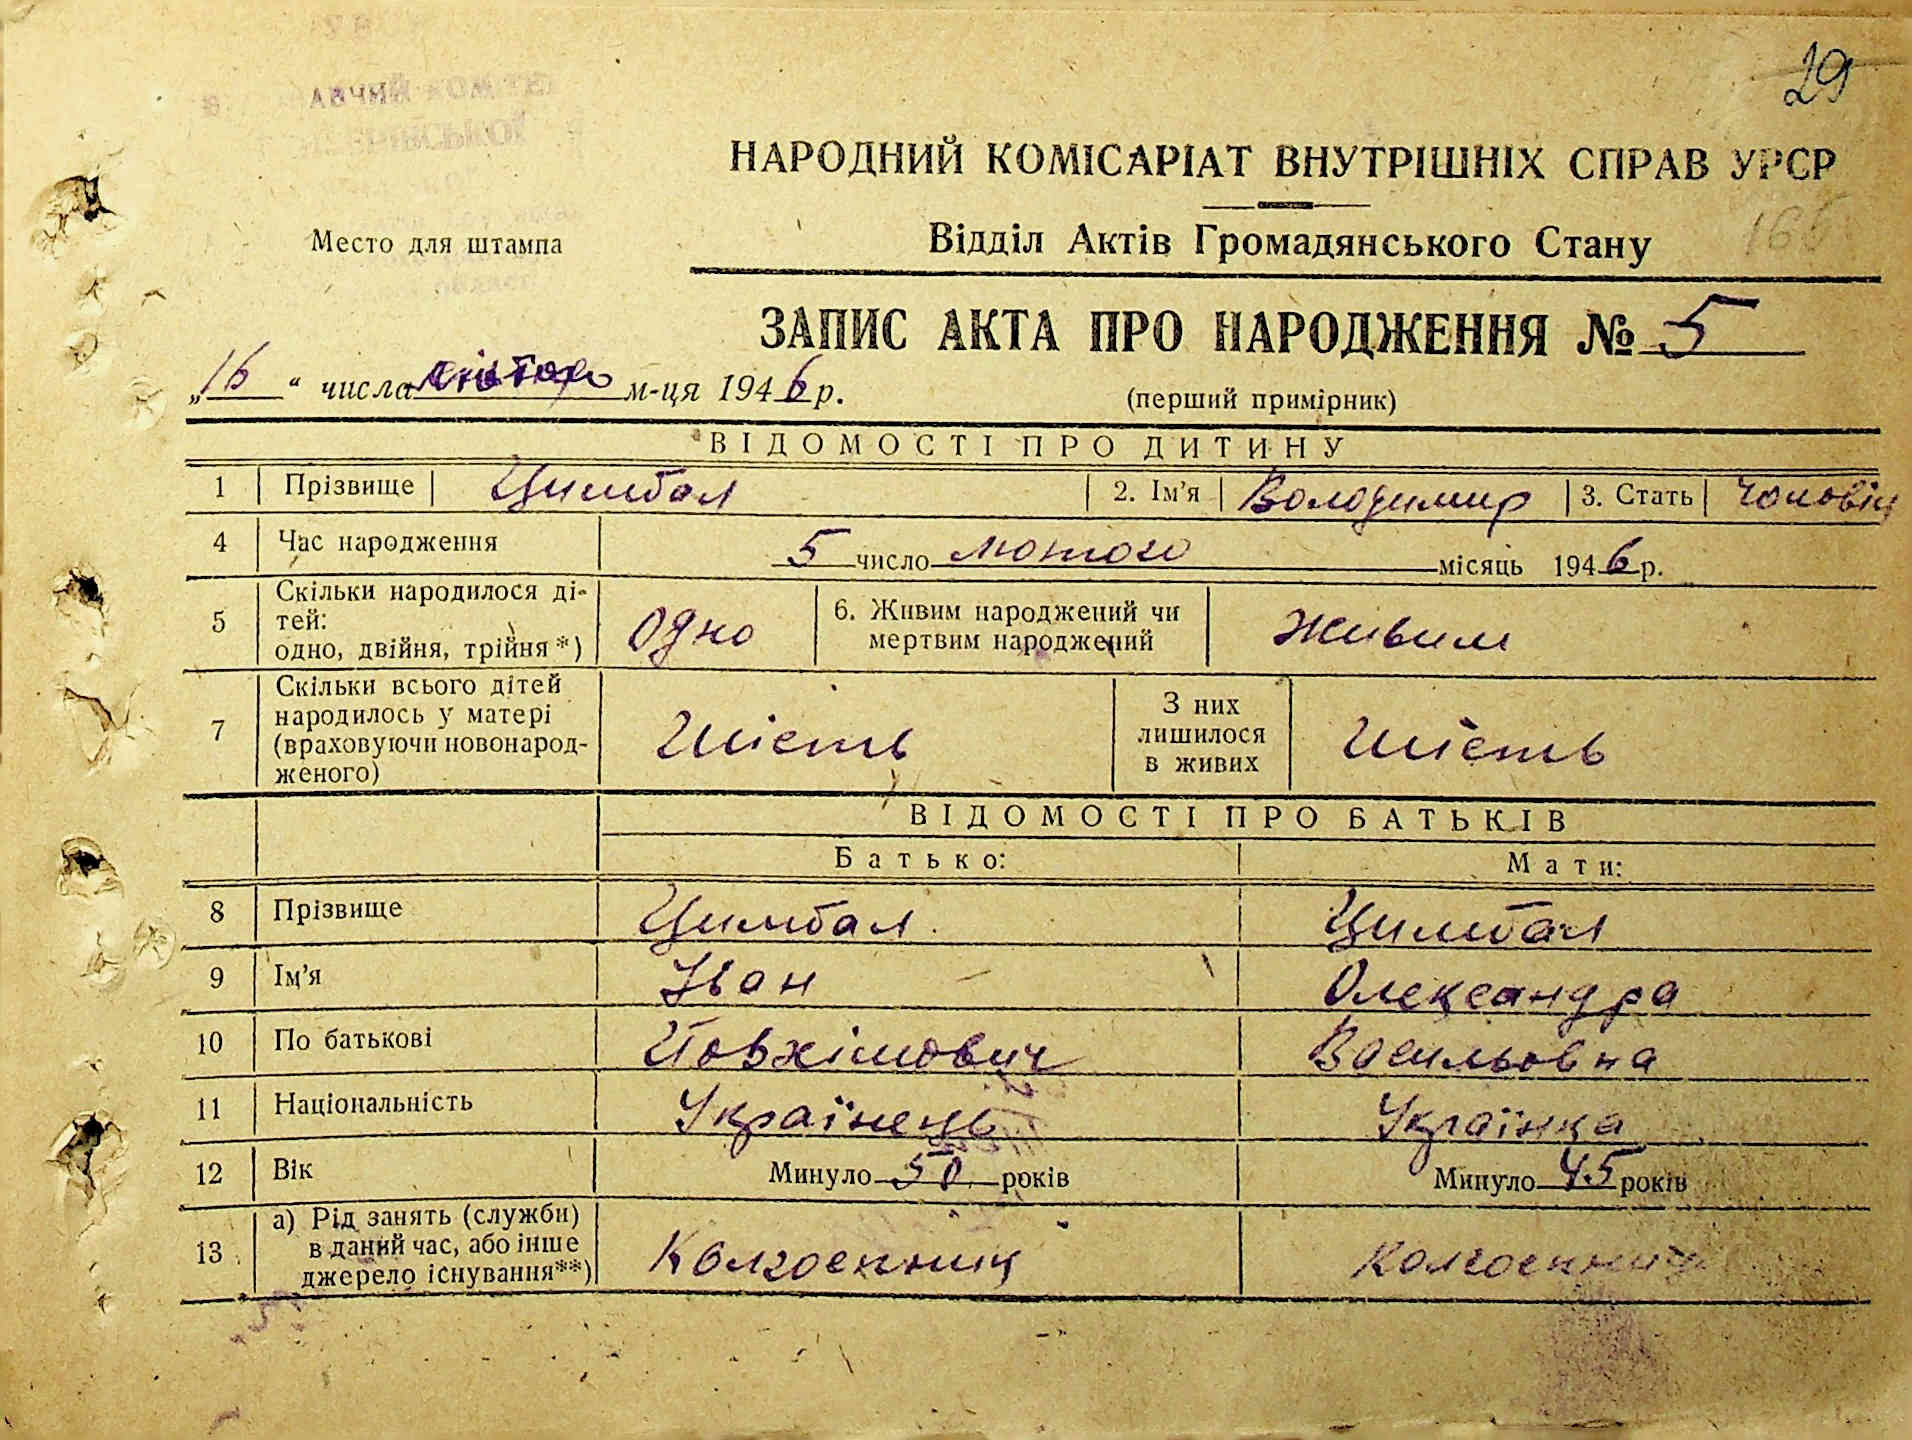 29
АВЧИЙ КОМІТЕ
НАРОДНИЙ КОМІСАРІАТ ВНУТРІШНІХ СПРАВ УРСР
Место для штампа
Відділ Актів Громадянського Стану
166
ЗАПИС АКТА ПРО НАРОДЖЕННЯ № 5
„16" числа м-ця 1946 р.
(перший примірник)
ВІДОМОСТІ ПРО ДИТИНУ
1 Прізвище Цимбал 2. Ім'я Володимир 3. Стать Чоловіч
4 Час народження 5 число лютого місяць 1946 р.
5 Скільки народилося ді-
тей:
одно, двійня, трійня *) Одно 6. Живим народжений чи
мертвим народжений Живим
7 Скільки всього дітей
народилось у матері
(враховуючи новонарод-
женого) Шість З них
лишилося
в живих Шість
ВІДОМОСТІ ПРО БАТЬКІВ
Батько: Мати:
8 Прізвище Цимбал Цимбал
9 Ім'я Іван Олександра
10 По батькові Йовхімович Васильовна
11 Національність Українець Українка
12 Вік Минуло 50 років Минуло 45 років
13 а) Рід занять (служби)
в даний час, або інше
джерело існування**) Колгоспниц Колгоспниця